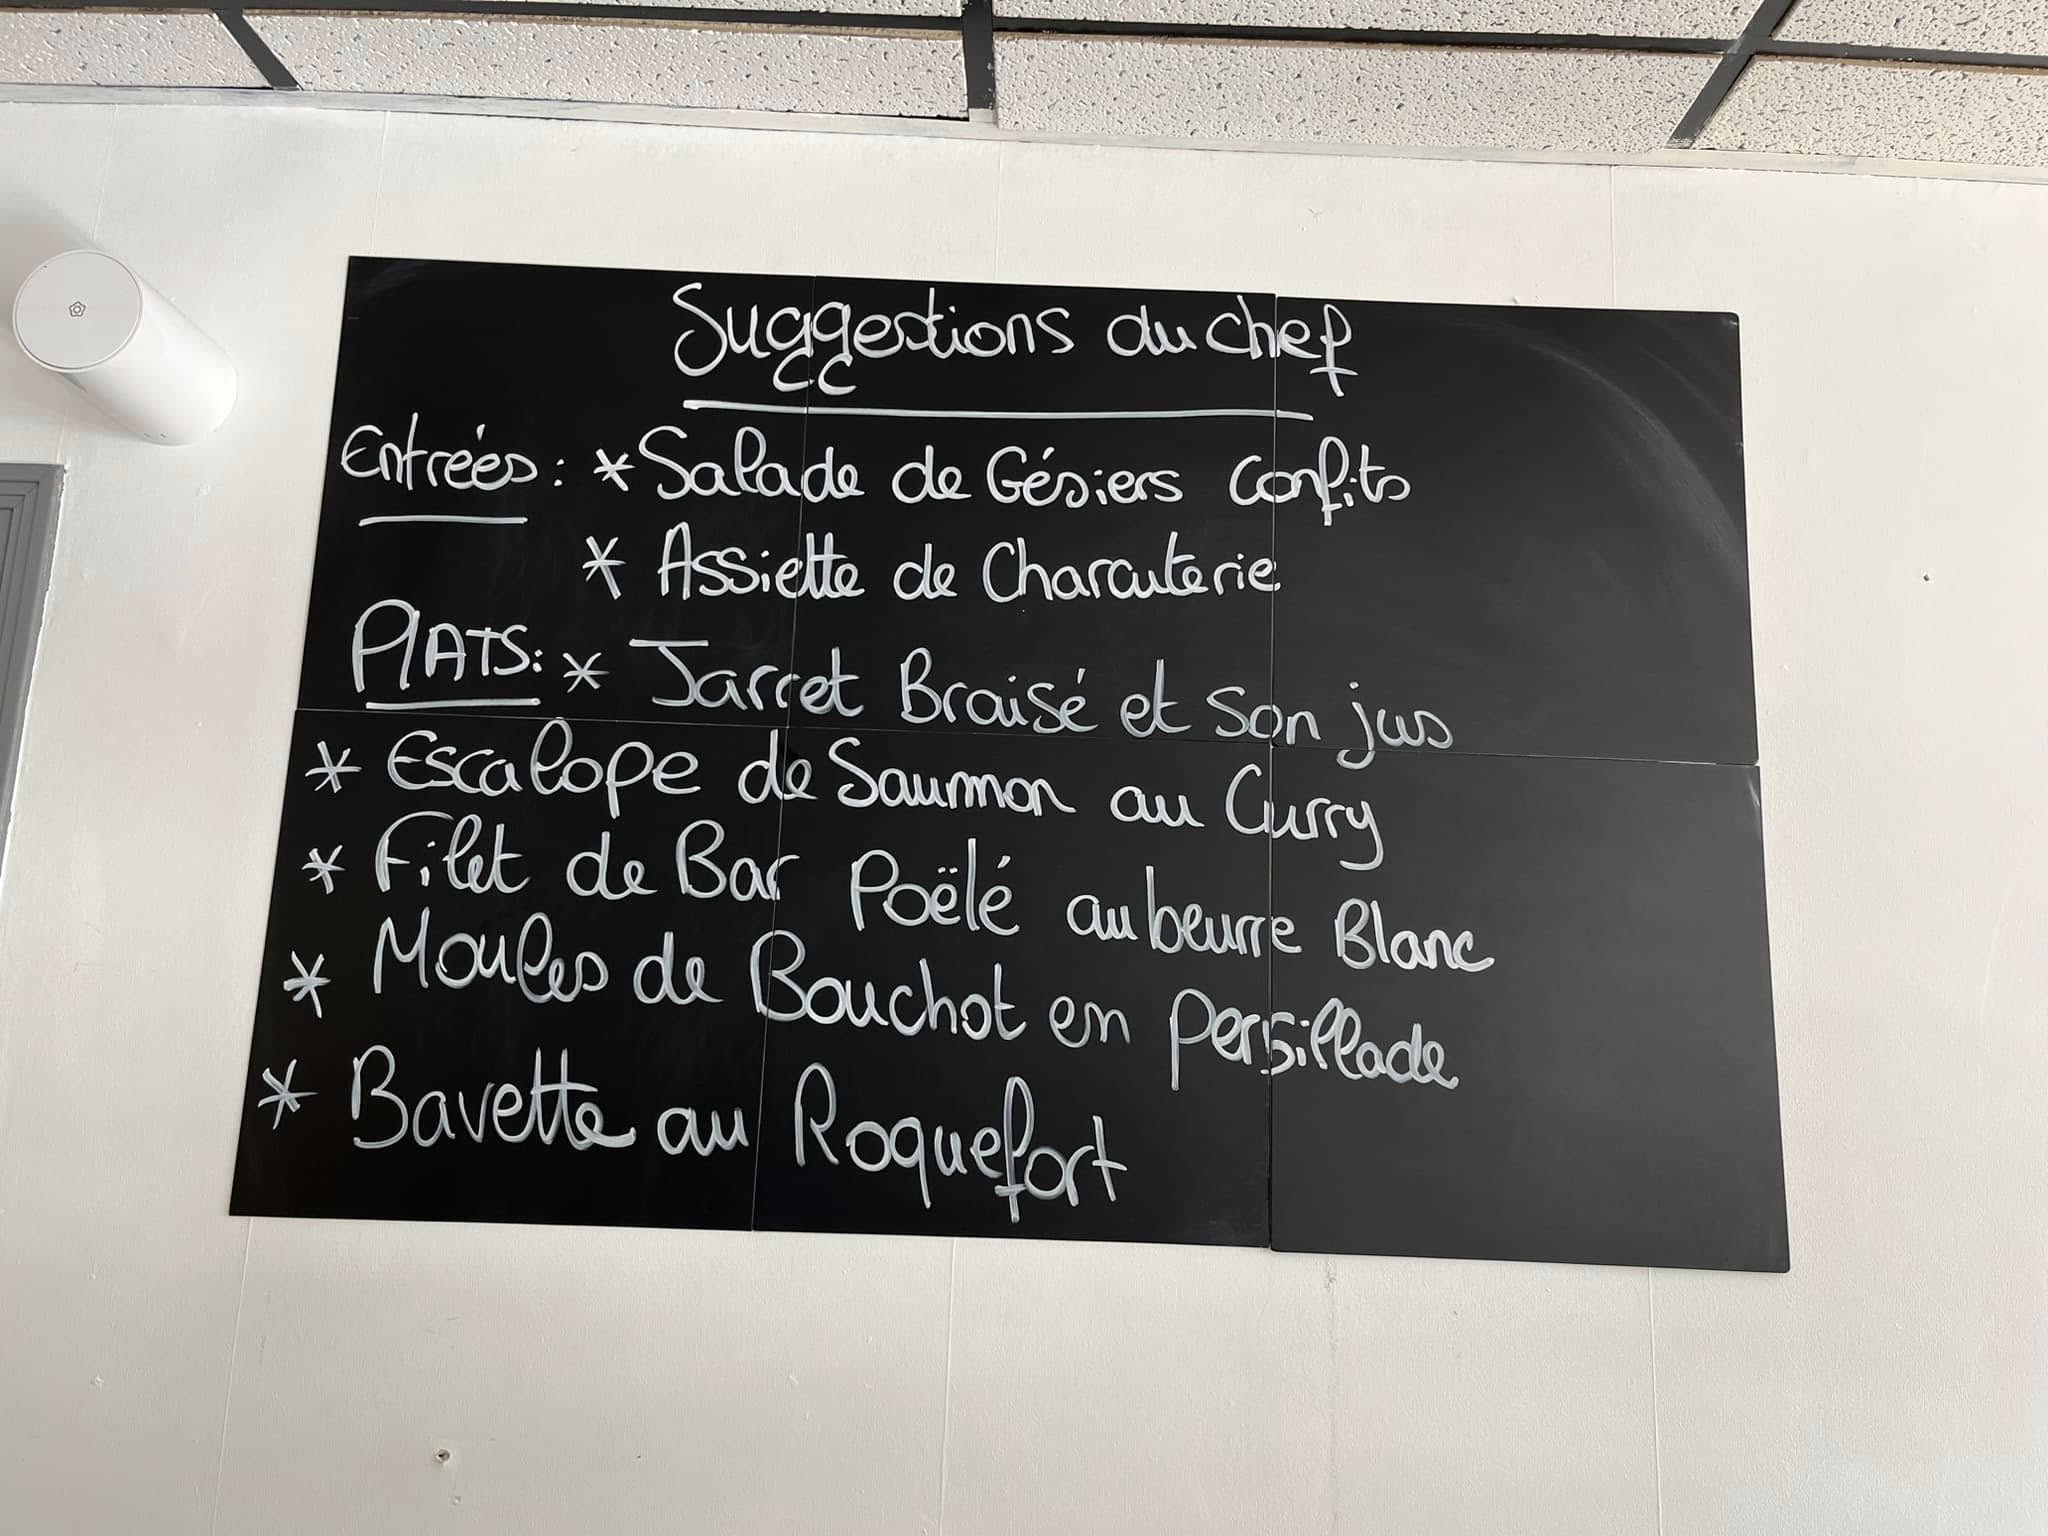 Suggestions du chef
Entrées: * Salade de Gésiers confits
* Assiette de Charcuterie
PlATS: * Jarret Braisé et son jus
* Escalope de Saumon au Curry
* Filet de Bar Poëlé au beurre Blanc
* Moules de Bouchot en persillade
* Bavette au Roquefort